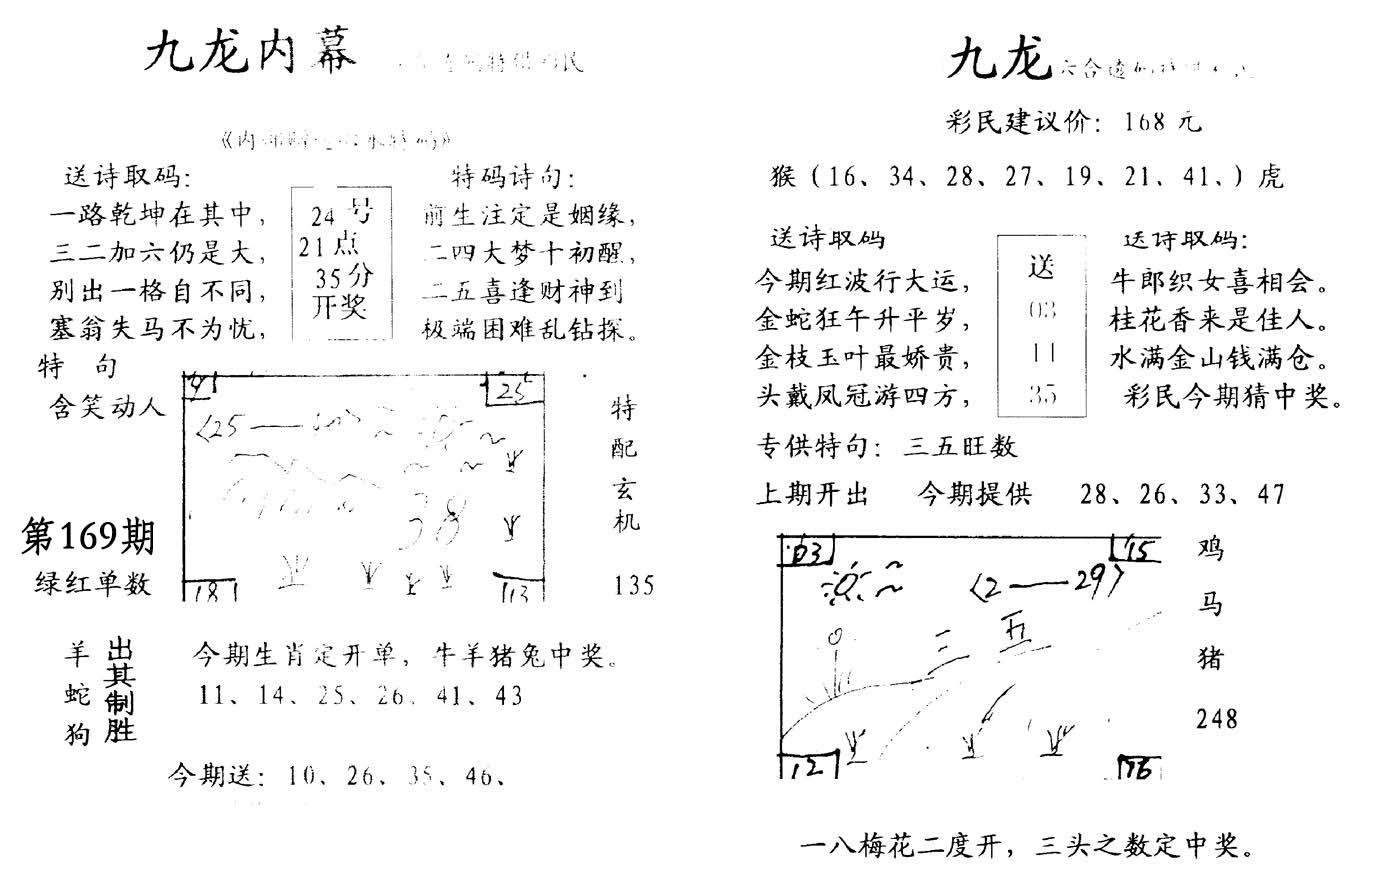 九龙内幕
送诗取码：
一路乾坤在其中，
三二加六仍是大，
别出一格自不同，
塞翁失马不为忧，
特 句
含笑动人
24号
21点
35分
开奖
特码诗句：
前生注定是姻缘，
二四大梦十初醒，
二五喜逢财神到
极端困难乱钻探。
25
〈25
38
181
113
特
配
玄
机
135
第169期
绿红单数
羊
蛇
狗
出
其
制
胜
今期生肖定开单，牛羊猪兔中奖。
11、14、25、26、41、43
今期送：10、26、35、46、
九龙六合透码
彩民建议价：168元
猴（16、34、28、27、19、21、41、）虎
送诗取码
今期红波行大运，
金蛇狂午升平岁，
金枝玉叶最娇贵，
头戴凤冠游四方，
送
03
11
35
送诗取码：
牛郎织女喜相会。
桂花香来是佳人。
水满金山钱满仓。
彩民今期猜中奖。
专供特句：三五旺数
上期开出 今期提供 28、26、33、47
03
15
〈2——29〉
三五
12
16
鸡
马
猪
248
一八梅花二度开，三头之数定中奖。